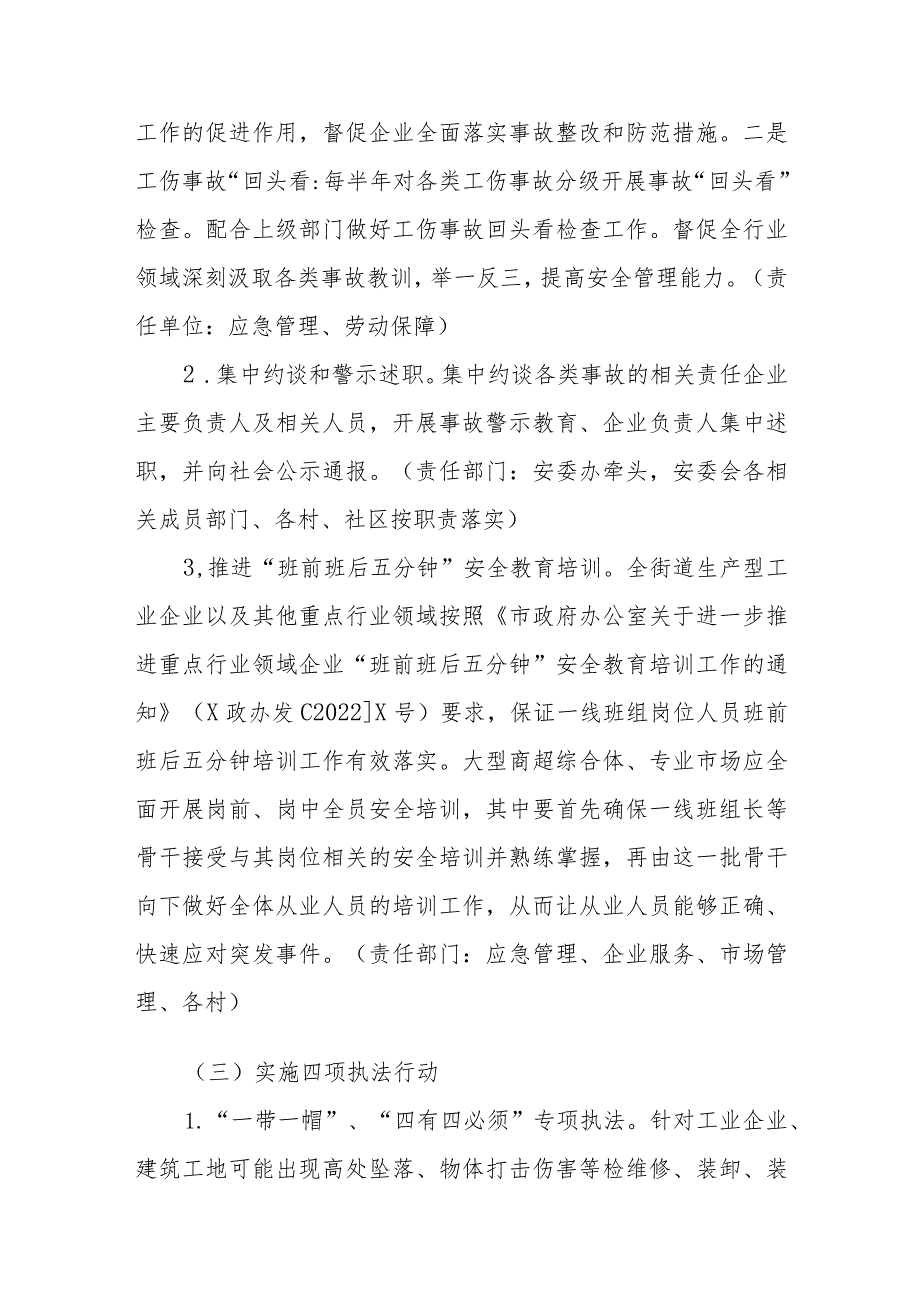 工作的促进作用，督促企业全面落实事故整改和防范措施。二是
工伤事故“回头看:每半年对各类工伤事故分级开展事故“回头看”
检查。配合上级部门做好工伤事故回头看检查工作。督促全行业
领域深刻汲取各类事故教训,举一反三,提高安全管理能力。（责
任单位：应急管理、劳动保障）
2 .集中约谈和警示述职。集中约谈各类事故的相关责任企业
主要负责人及相关人员，开展事故警示教育、企业负责人集中述
职，并向社会公示通报。（责任部门：安委办牵头，安委会各相
关成员部门、各村、社区按职责落实）
3,推进“班前班后五分钟”安全教育培训。全街道生产型工
业企业以及其他重点行业领域按照《市政府办公室关于进一步推
进重点行业领域企业“班前班后五分钟”安全教育培训工作的通
知》（X 政办发 C2022]X 号）要求，保证一线班组岗位人员班前
班后五分钟培训工作有效落实。大型商超综合体、专业市场应全
面开展岗前、岗中全员安全培训，其中要首先确保一线班组长等
骨干接受与其岗位相关的安全培训并熟练掌握，再由这一批骨干
向下做好全体从业人员的培训工作，从而让从业人员能够正确、
快速应对突发事件。（责任部门：应急管理、企业服务、市场管
理、各村）
（三）实施四项执法行动
1. “一带一帽”、“四有四必须”专项执法。针对工业企业、
建筑工地可能出现高处坠落、物体打击伤害等检维修、装卸、装